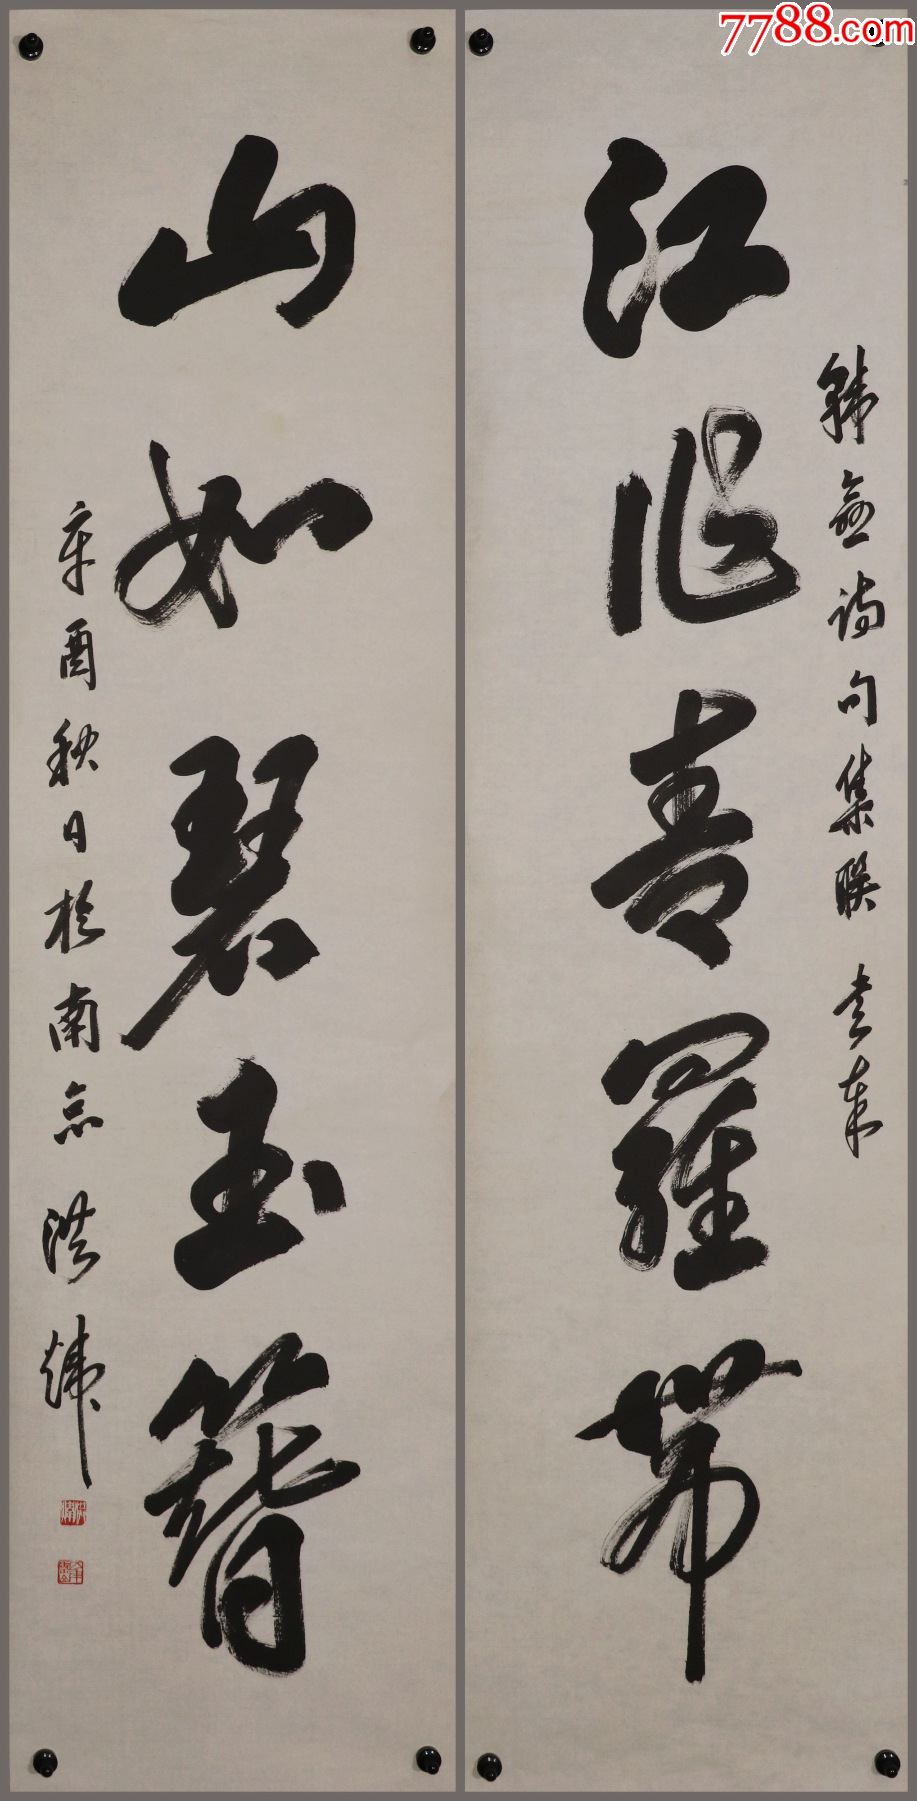 7788.com
江作青羅帶
韩愈诗句集联
山如碧玉簪
辛酉秋日於南京 洪